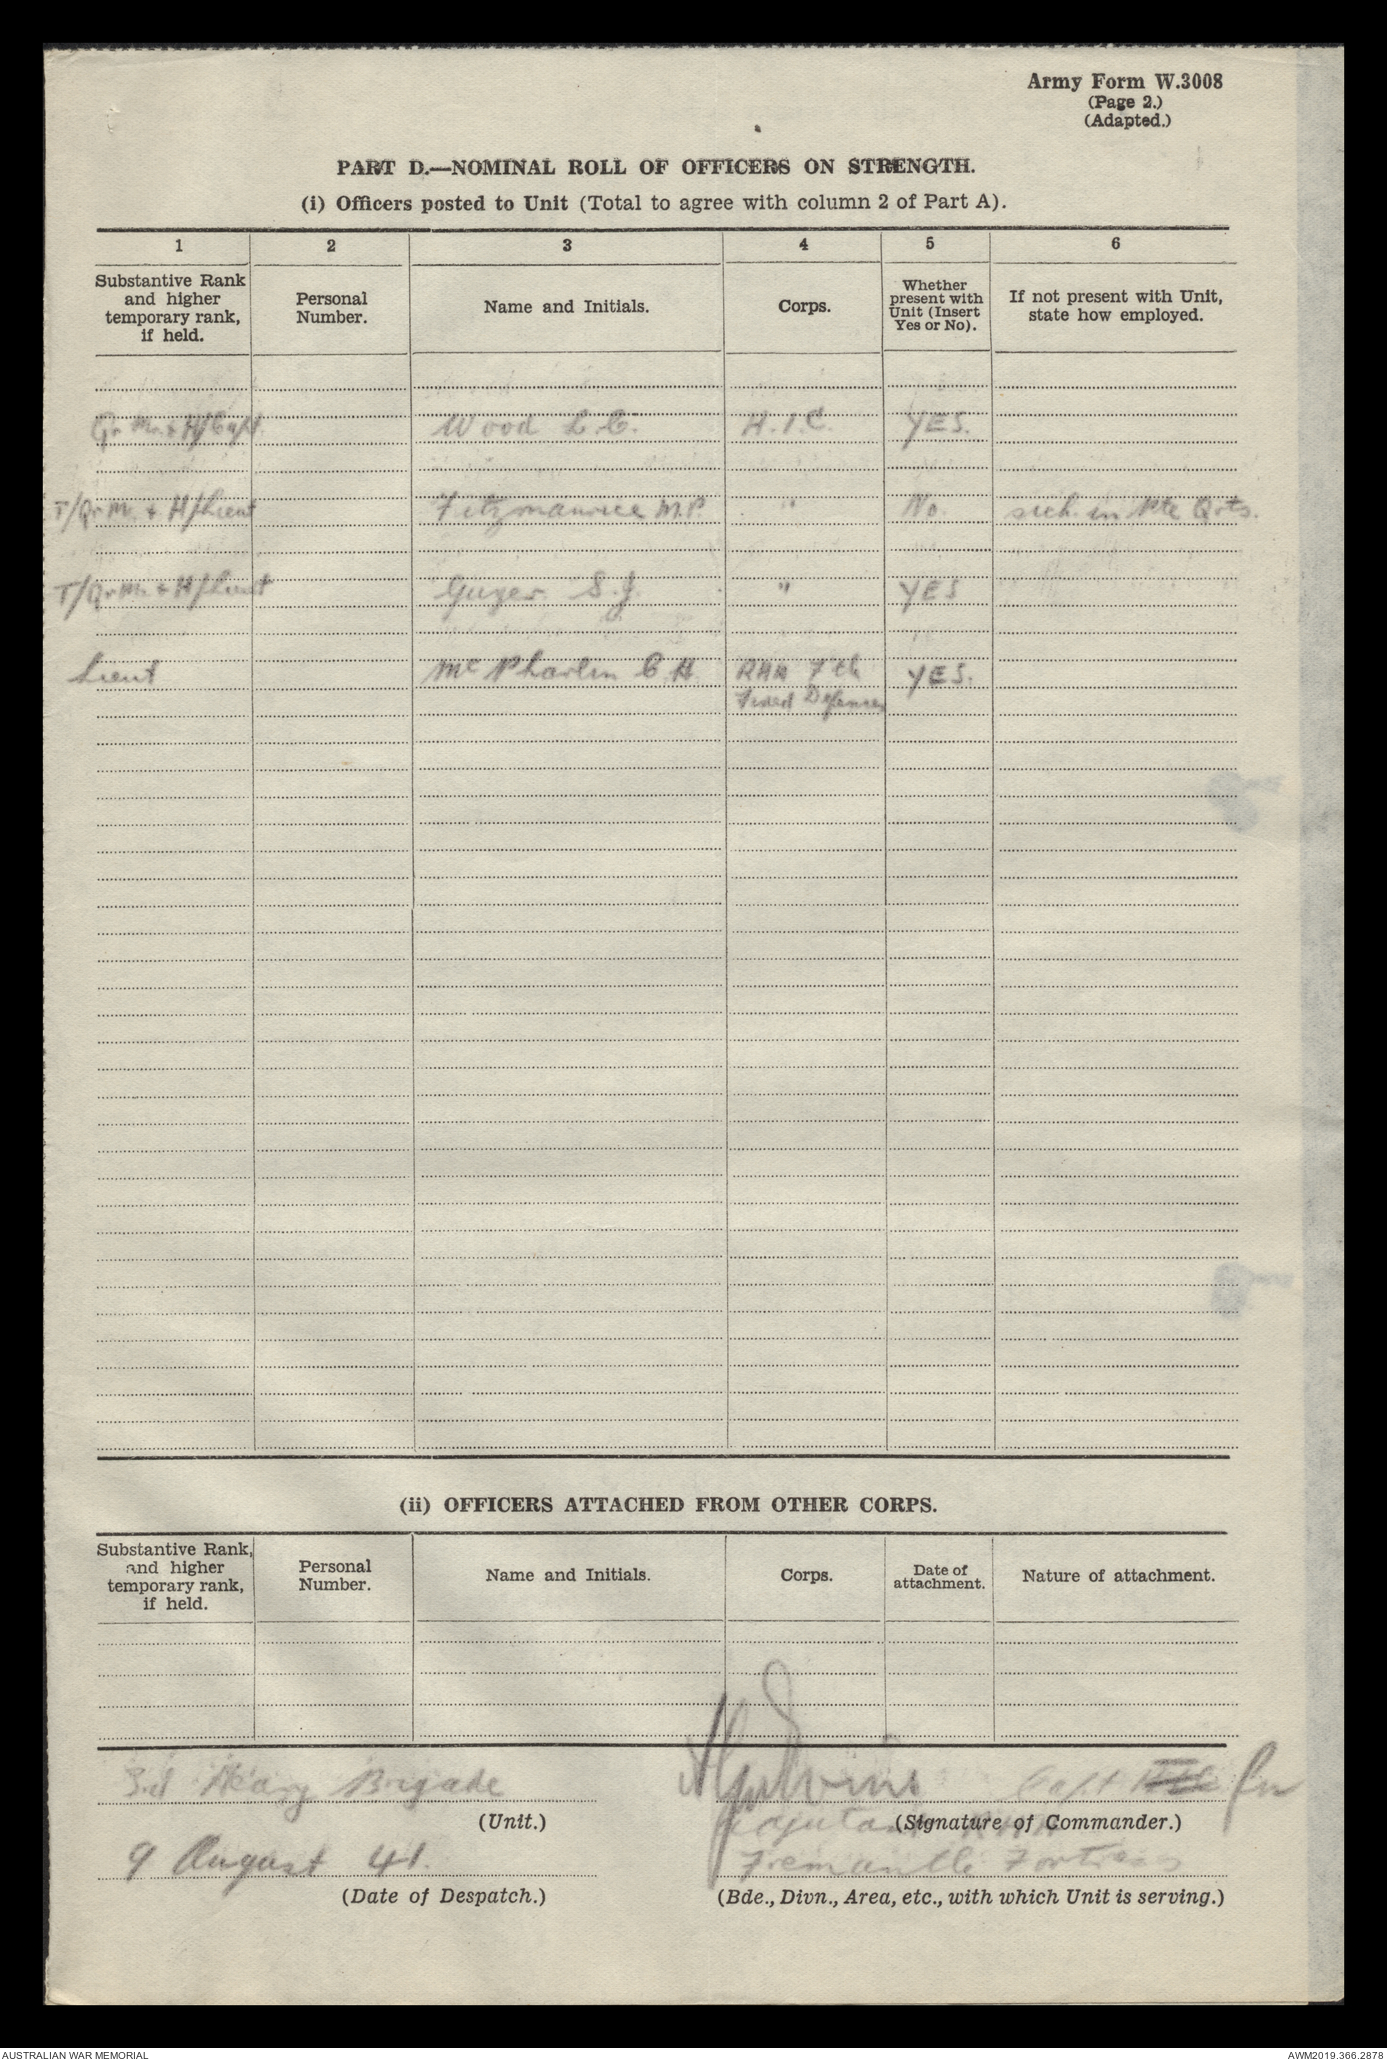 Army Form W.3008
(Page 2.)
(Adapted.)
PART D.—NOMINAL ROLL OF OFFICERS ON STRENGTH.
(i) Officers posted to Unit (Total to agree with column 2 of Part A).
1 2 3 4 5 6
Substantive Rank and higher temporary rank, if held. Personal Number. Name and Initials. Corps. Whether present with Unit (Insert Yes or No). If not present with Unit, state how employed.
Qr Mr. & H/Capt. Wood L.C. A.I.C. YES.
T/Qr Mr. & H/Lieut Fitzmaurice M.P. " No. sick in Pte Qrts.
T/Qr Mr. & H/Lieut S.J. " YES
Lieut McPharlin C.A. RAA 7th YES.
Fixed Defences
(ii) OFFICERS ATTACHED FROM OTHER CORPS.
Substantive Rank, and higher temporary rank, if held. Personal Number. Name and Initials. Corps. Date of attachment. Nature of attachment.
3rd Heavy Brigade Capt for
(Unit.) (Signature of Commander.)
Adjutant RAA
9 August 41. Fremantle Fortress
(Date of Despatch.) (Bde., Divn., Area, etc., with which Unit is serving.)
AUSTRALIAN WAR MEMORIAL AWM2019.366.2878